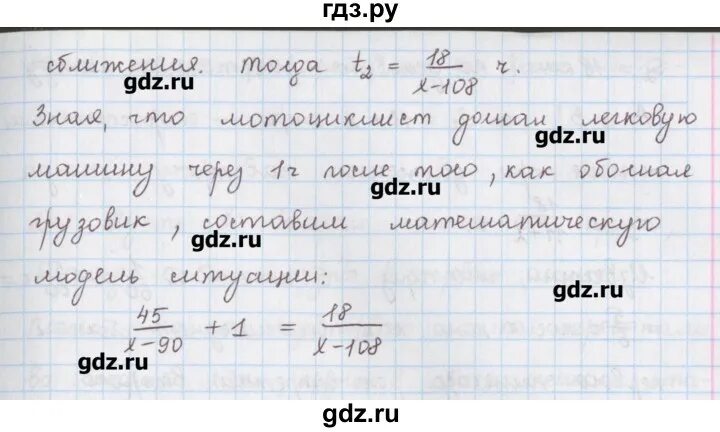 гдз.ру
сближения. Тогда t₂ = 18/(x-108) ч.
gdz.ru
gdz.ru
Зная, что мотоциклист догнал легковую
gdz.ru
машину через 1ч после того, как обогнал
gdz.ru
грузовик, составим математическую
gdz.ru
модель ситуации:
gdz.ru
45/(x-90) + 1 = 18/(x-108)
gdz.ru
gdz.ru